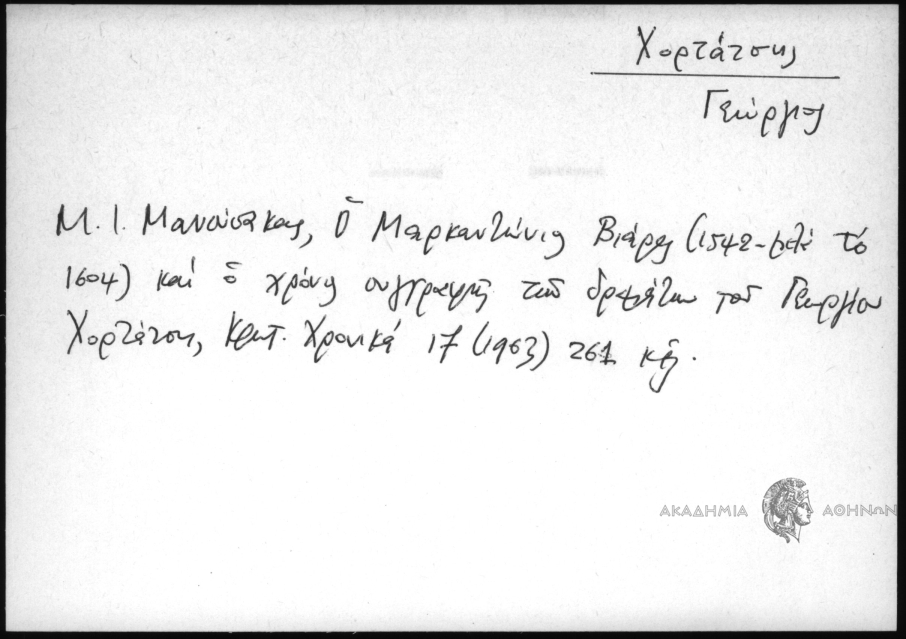 Χορτάτσης
Γεώργιος
Μ. Ι. Μανούσακας, Ὁ Μαρκαντώνιος Βιάρος (1542-μετά τό
1604) καί ὁ χρόνος συγγραφῆς τῶν δραμάτων τοῦ Γεωργίου
Χορτάτση, Κρητ. Χρονικά 17 (1963) 261 κἑξ.
ΑΚΑΔΗΜΙΑ ΑΘΗΝΩΝ